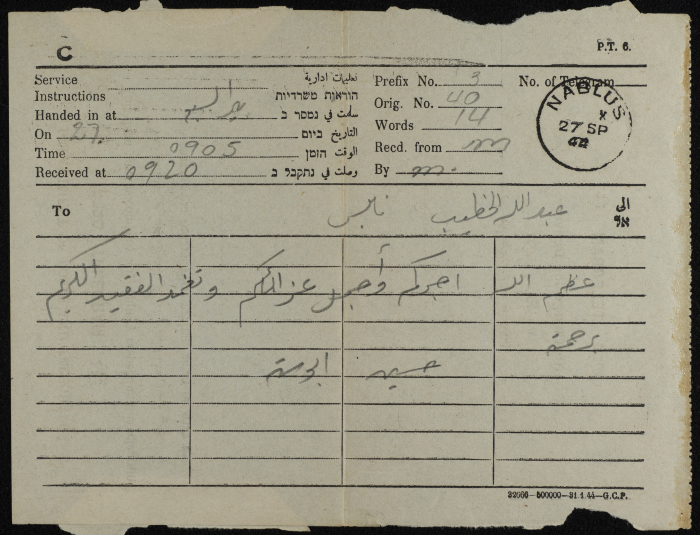 C
P.T. 6.
Service تعليمات ادارية
Instructions הוראות משרדיות
Handed in at بير السبع سلمت في נמסר ב
On 27. التاريخ ביום
Time 0905 الوقت הזמן
Received at 0920 وصلت في נתקבל ב
Prefix No. 3 No. of Telegram
Orig. No. 40
Words 14
Recd. from m
By m.
NABLUS
X
27 SP
44
To عبد الله الخطيب نابلس الى
אל
عظم الله اجركم وأجمل عزائكم وتغمد الفقيد الكريم
برحمته
حسين ابوستة
32666—500000—31.1.44—G.C.P.